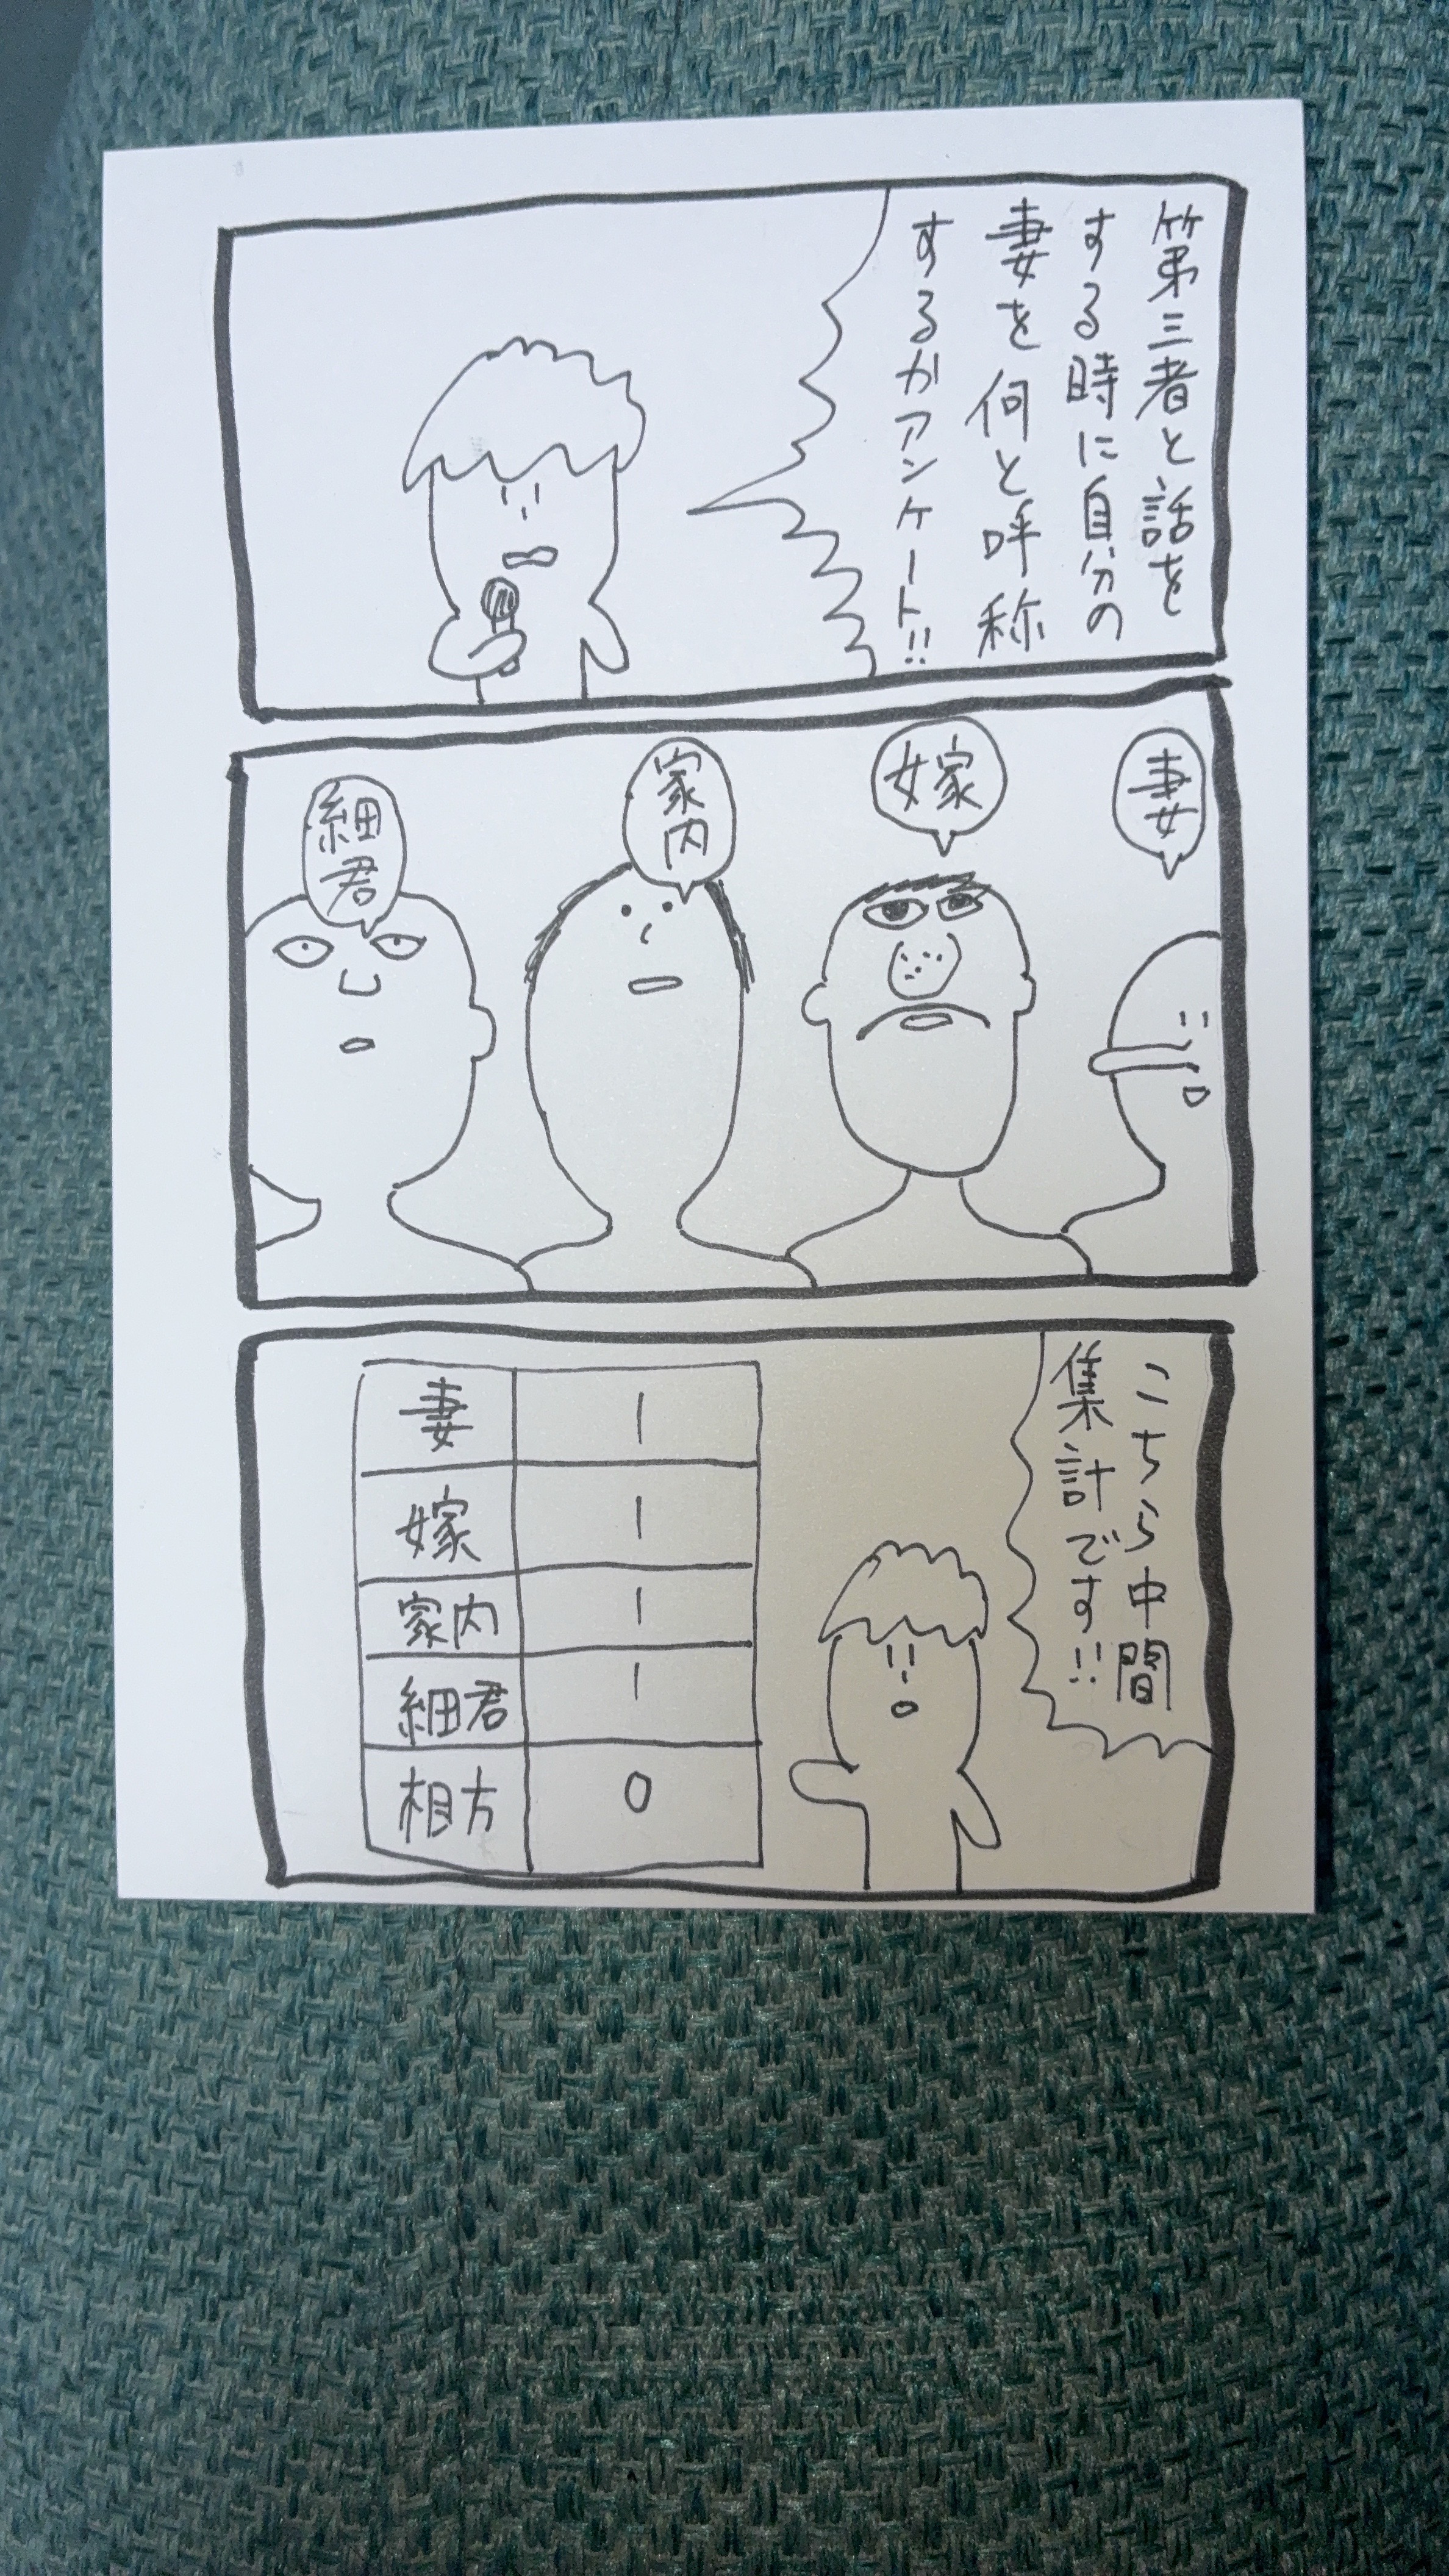 第三者と話を
する時に自分の
妻を何と呼称
するかアンケート!!
妻
嫁
家
内
細
君
こちら中間
集計です!!
妻 1
嫁 1
家内 1
細君 1
相方 0